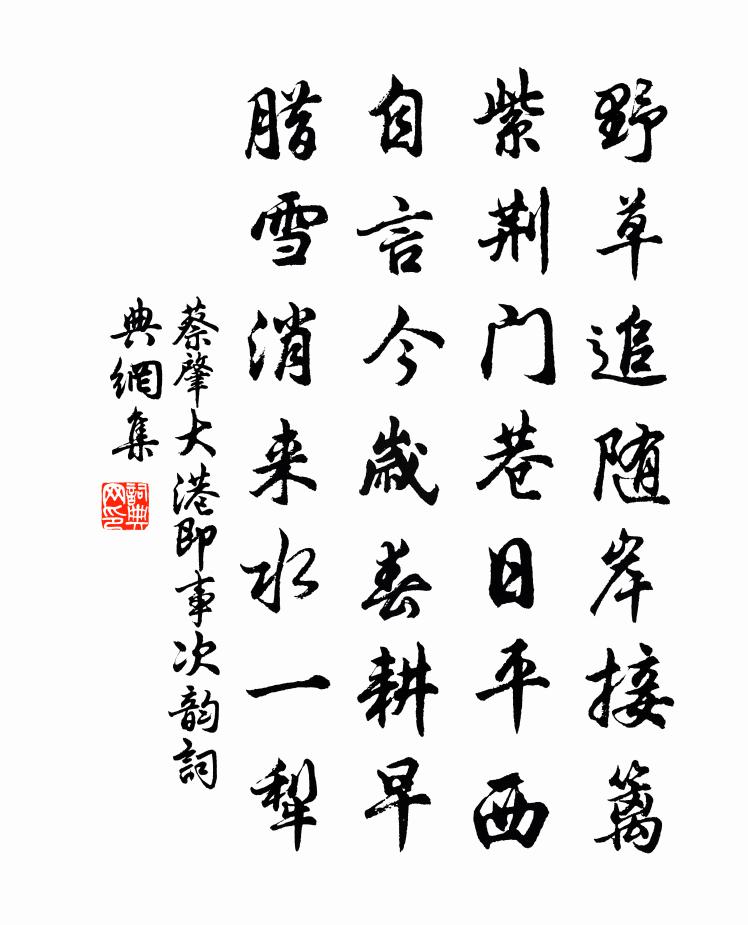 野草追随岸接篱
紫荆门巷日平西
自言今歲春耕早
腊雪消来水一犁
蔡肇大港即事次韵詞
典網集
詞典
网印